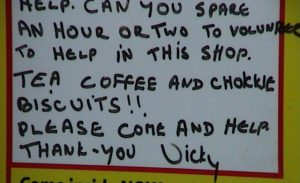 HELP. CAN YOU SPARE
AN HOUR OR TWO TO VOLUNTEER
TO HELP IN THIS SHOP.
TEA COFFEE AND CHOKKIE
BISCUITS!!
PLEASE COME AND HELP.
THANK-YOU Vicky